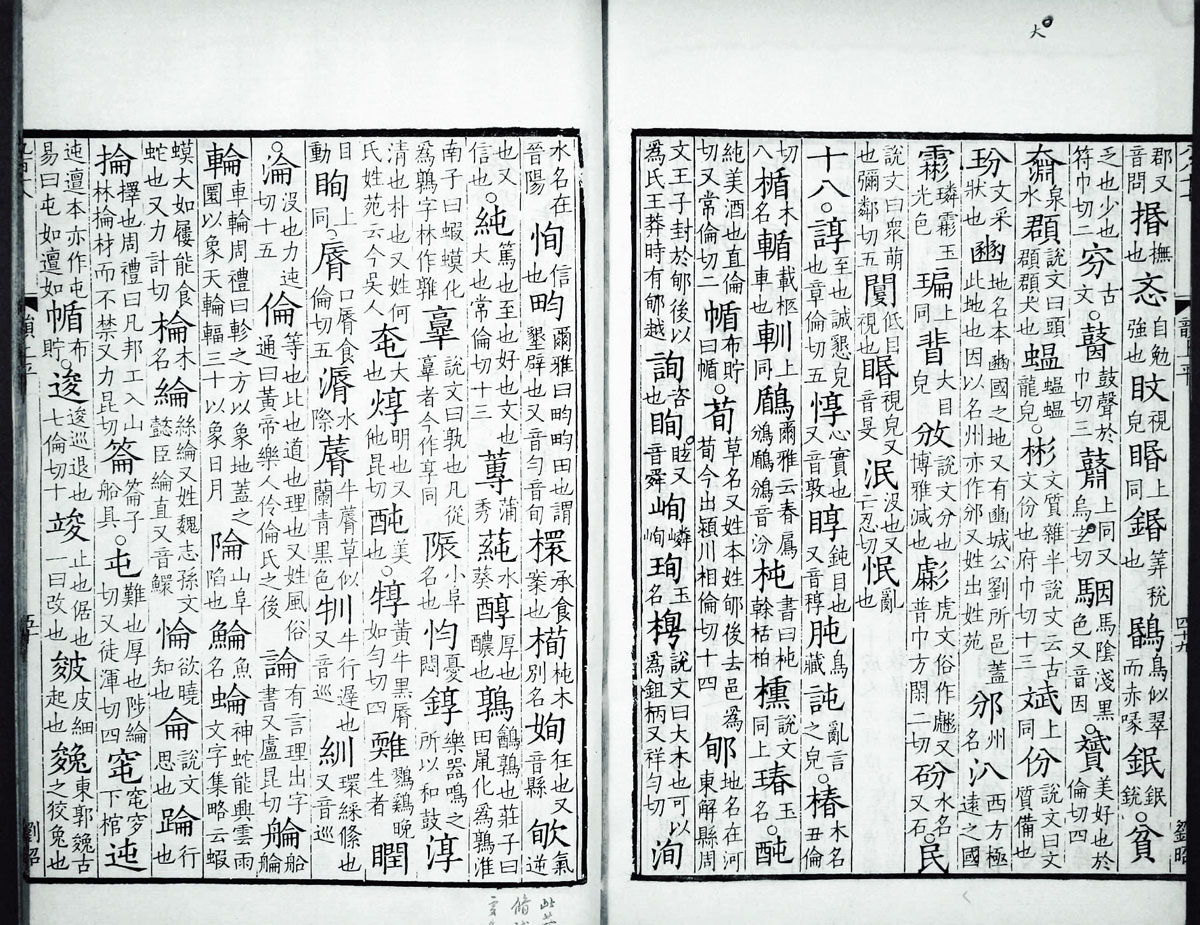 郡又音問捪撫也忞自勉強也旼視皃睧上同鍲筭稅也鶥鳥似翠而赤喙鈱鈱銳○貧
乏也少也符巾切二穷古文○鼖鼓聲於巾切三鼘上同又烏玄切駰馬陰淺黑色又音因○贇美好也於倫切四
奫泉水頵說文曰頭頵頵大也蝹蝹蝹龍皃○彬文質雜半說文云古文份也府巾切十三斌上同份說文曰文質備也
玢文采狀也豳地名本豳國之地又有豳城公劉所邑蓋此地也因以名州亦作邠又姓出姓苑邠州名汃西方極遠之國
霦璘霦玉光色㻞上同大目皃攽說文分也博雅減也虨虎文俗作彪又普巾方閑二切砏水名又石○民
說文曰衆萌也彌鄰切五低目視也睧視皃又音旻泯沒也又亡忍切怋亂也
十八○諄至也誠懇皃也章倫切五惇心實也又音敦盹鈍目也又音稕肫鳥藏訰亂言之皃○椿木名丑倫
切八楯木名輴載柩車也䡅上同鶞爾雅云春鳸鳻鶞鳻音汾杶書曰杶榦栝柏櫄說文同上瑃玉名○䣩
純美酒也直倫切又常倫切二㡒布貯曰㡒○荀草名又姓本姓郇後去邑爲荀今出潁川相倫切十四郇地名在河東解縣周
文王子封於郇後以爲氏王莽時有郇越詢咨也眴眩又音舜峋嶙峋珣玉名梬說文曰大木也可以爲鉏柄又祥勻切洵
水名在晉陽恂信也畇爾雅曰畇畇田也謂墾辟也又音勻音旬檈承食案也栒杶木別名姰狂也又音縣欨氣逆
也又信也○純篤也至也好也文也大也常倫切十三蓴蒲秀蒓水葵醇厚也醲也鶉鶕鶉也莊子曰田鼠化爲鶉淮
南子曰蝦蟆化爲鶉字林作䳺𦎫說文曰孰也凡從𦎫者今作享同陙小埠名也忳憂悶錞樂器鳴之所以和鼓淳
清也朴也又姓何氏姓苑云今吳人奄大也焞明也又他昆切䣩美也○犉黃牛黑脣如勻切四䳺鷚鷄晚生者瞤
目動眴上同○脣口脣食倫切五漘水際蓐牛蓐草似蘭青黑色牣牛行遲也又音巡紃環綵絛也又音巡
○淪沒也力迍切十五倫等也比也道也理也又姓風俗通曰黃帝樂人伶倫氏之後論有言理出字書又盧昆切䑳船䑳
輪車輪周禮曰軫之方以象地蓋之圜以象天輪輻三十以象日月陯山阜陷也鯩魚名蜦神蛇能興雲雨文字集略云蝦
蟆大如屨能食蛇也又力計切棆木名綸絲綸又姓魏志孫文懿臣綸直又音鰥惀欲曉知也侖說文思也踚行也
掄擇也周禮曰凡邦工入山林掄材而不禁又力昆切䈁䈁子船具○屯難也厚也陟綸切又徒渾切四窀窀穸下棺迍
迍邅本亦作屯易曰屯如邅如㡒布貯○逡逡巡退也七倫切十竣止也倨也一曰改也皴皮細起也䞭東郭䞭古之狡兔也
四十九
五十
劉昭
劉昭